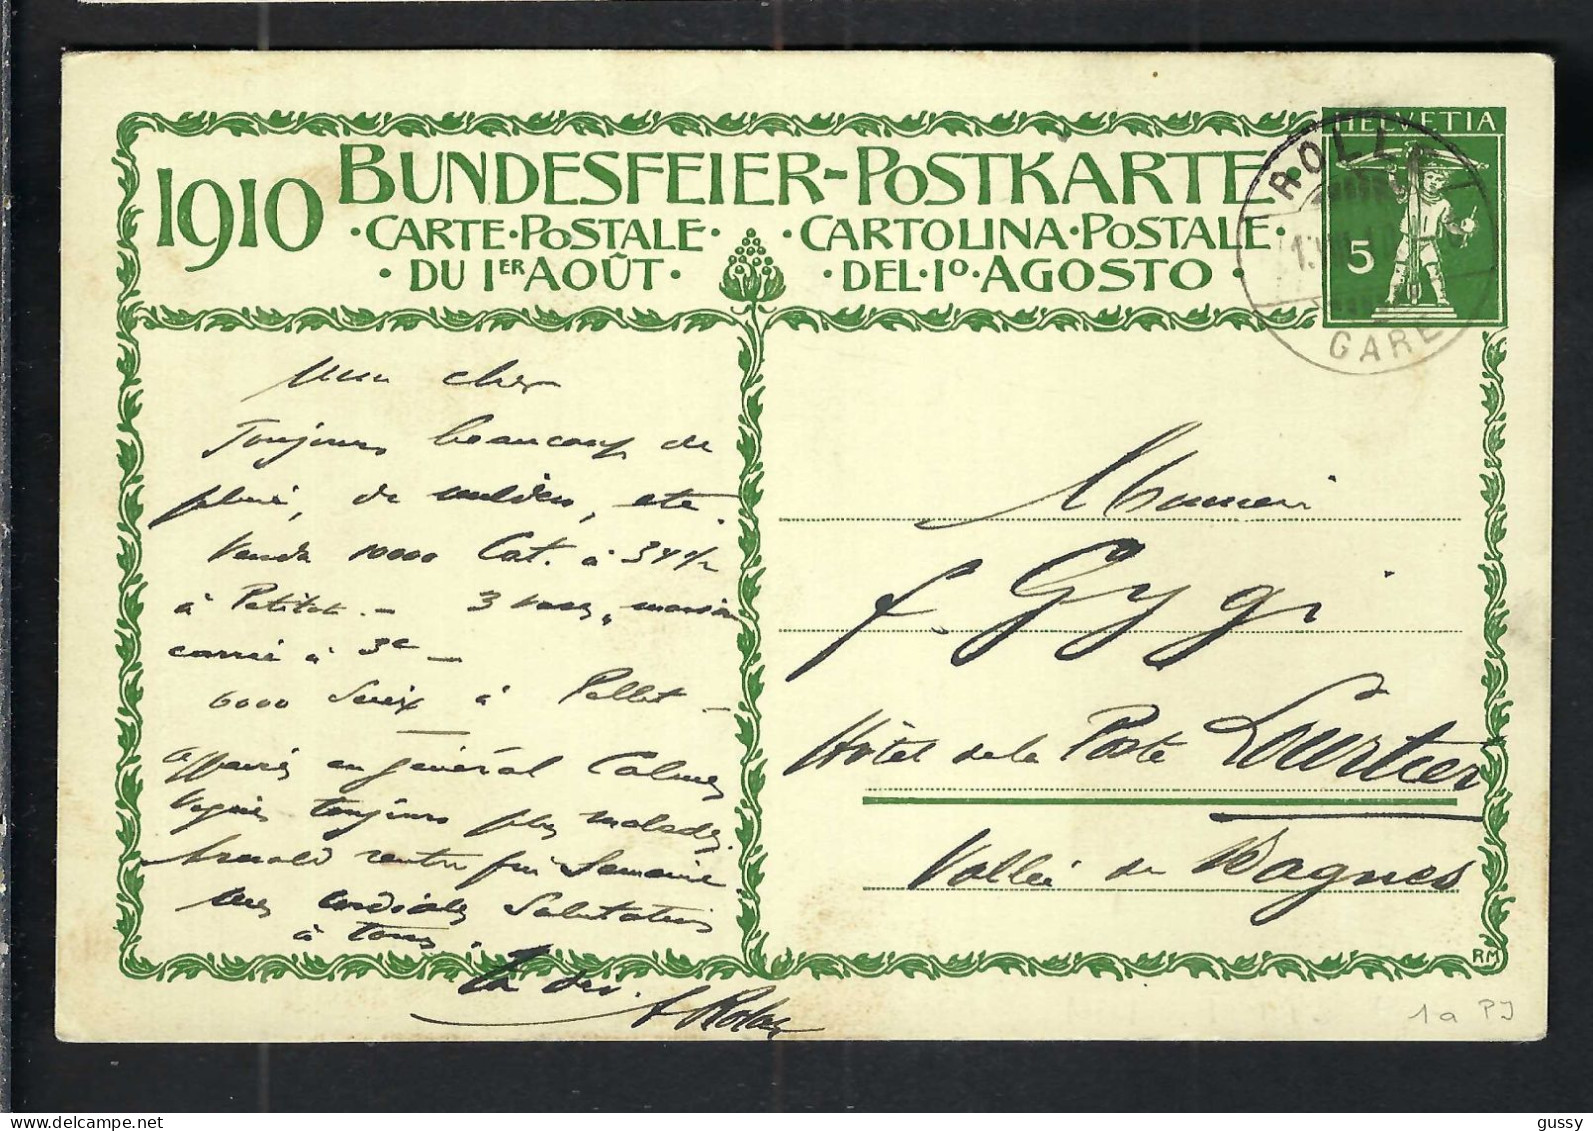 1910 BUNDESFEIER-POSTKARTE
·CARTE·POSTALE· ·CARTOLINA·POSTALE·
·DU 1ER AOÛT· ·DEL·1º·AGOSTO·
HELVETIA
5
ROLLE
GARE
Mon cher
Toujours beaucoup de
pluie, de mildew, etc.
Vendu 10000 Cat. à
à Petitot - 3 vases, maison
carrée à 3e -
6000 à Pellet -
Affaires en général Calmes
Vignes toujours plus malades.
Arnold rentre fin Semaine
Mes cordiales Salutations
à tous.
Monsieur
F. Gygi
Hôtel de la Poste Lourtier
Vallée de Bagnes
RM
1a PJ
gussy